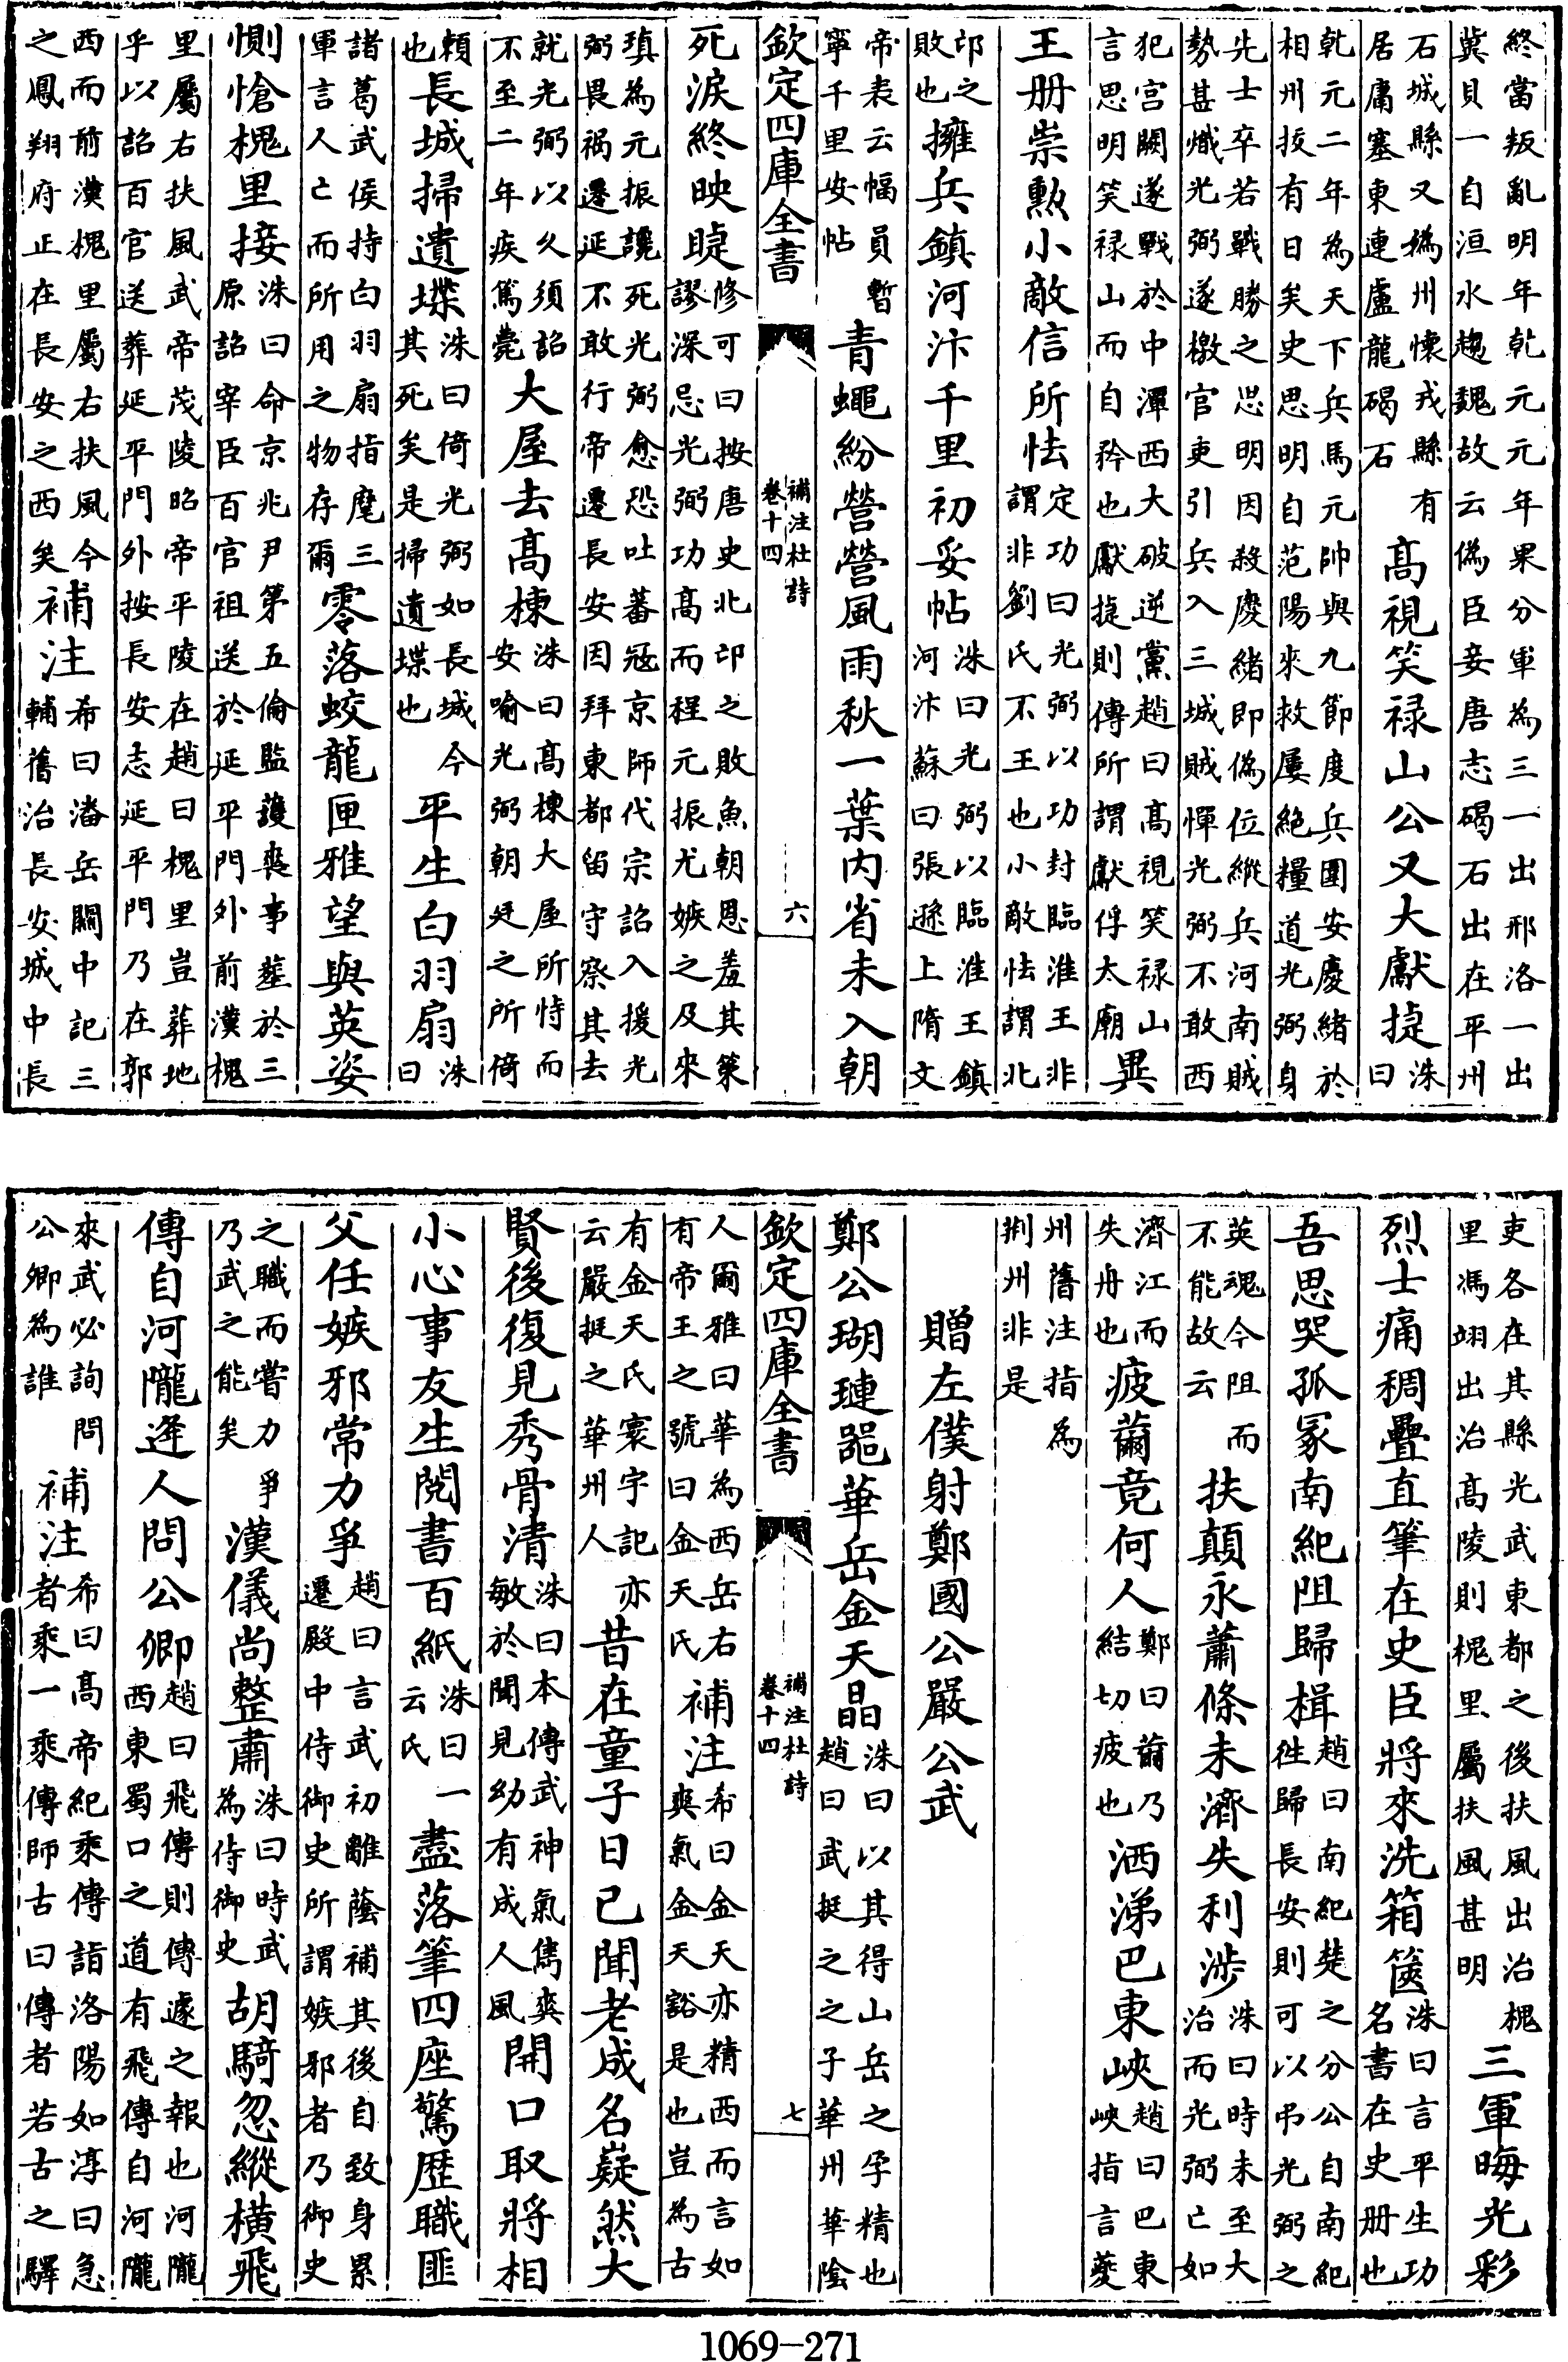 終當叛亂明年乾元元年果分軍為三一出邢洛一出
冀貝一自洹水趨魏故云偽臣妾唐志碣石出在平州
石城縣又稱州懷戎縣有
居庸塞東連盧龍碣石
高視笑禄山公又大獻捷洙曰
乾元二年為天下兵馬元帥與九節度兵圍安慶緒於
相州拔有日矣史思明自范陽來救屢絶糧道光弼身
先士卒若戰勝之思明因殺慶緒即偽位縱兵河南賊
勢甚熾光弼遂檄官吏引兵入三城賊憚光弼不敢西
犯宮闕遂戰於中潭西大破逆黨趙曰高視笑禄山
言思明笑禄山而自矜也獻捷則傳所謂獻俘太廟
異
王冊崇勲小敵信所怯定功曰光弼以功封臨淮王非
謂非劉氏不王也小敵怯謂北
邙之
敗也
擁兵鎮河汴千里初妥帖洙曰光弼以臨淮王鎮
河汴蘇曰張遜上隋文
帝表云幅員暫
寧千里安帖
青蠅紛營營風雨秋一葉内省未入朝
欽定四庫全書
補注杜詩
卷十四
六
死淚終映睫修可曰按唐史北邙之敗魚朝恩羞其策
謬深忌光弼功高而程元振尤嫉之及來
瑱為元振讒死光弼愈恐吐蕃冦京師代宗詔入援光
弼畏禍遷延不敢行帝遷長安因拜東都留守察其去
就光弼以久須詔
不至二年疾篤薨
大屋去高棟洙曰高棟大屋所恃而
安喻光弼朝廷之所倚
頼
也
長城掃遺堞洙曰倚光弼如長城今
其死矣是掃遺堞也
平生白羽扇洙
曰
諸葛武侯持白羽扇指麾三
軍言人亡而所用之物存爾
零落蛟龍匣雅望與英姿
惻愴槐里接洙曰命京兆尹第五倫監護喪事葬於三
原詔宰臣百官祖送於延平門外前漢槐
里屬右扶風武帝茂陵昭帝平陵在趙曰槐里豈葬地
乎以詔百官送葬延平門外按長安志延平門乃在郭
西而前漢槐里屬右扶風今
之鳳翔府正在長安之西矣
補注希曰潘岳關中記三
輔舊治長安城中長
吏各在其縣光武東都之後扶風出治槐
里馮翊出治高陵則槐里屬扶風甚明
三軍晦光彩
烈士痛稠疊直筆在史臣將來洗箱篋洙曰言平生功
名書在史册也
吾思哭孤冢南紀阻歸楫趙曰南紀楚之分公自南紀
徃歸長安則可以弔光弼之
英魂今阻而
不能故云
扶顛永蕭條未濟失利涉洙曰時未至大
治而光弼亡如
濟江而
失舟也
疲薾竟何人鄭曰薾乃
結切疲也
洒涕巴東峽趙曰巴東
峽指言夔
州舊注指為
荆州非是
贈左僕射鄭國公嚴公武
鄭公瑚璉器華岳金天晶洙曰以其得山岳之孕精也
趙曰武挺之之子華州華隂
欽定四庫全書
補注杜詩
卷十四
七
人爾雅曰華為西岳右
有帝王之號曰金天氏
補注希曰金天亦精西而言如
爽氣金天豁是也豈為古
有金天氏寰宇記亦
云嚴挺之華州人
昔在童子日已聞老成名嶷然大
賢後復見秀骨清洙曰本傳武神氣雋爽
敏於聞見幼有成人風
開口取將相
小心事友生閱書百紙洙曰一
云氏
盡落筆四座驚歴職匪
父任嫉邪常力爭趙曰言武初離蔭補其後自致身累
遷殿中侍御史所謂嫉邪者乃御史
之職而嘗力爭
乃武之能矣
漢儀尚整肅洙曰時武
為侍御史
胡騎忽縱橫飛
傳自河隴逄人問公卿趙曰飛傳則傳遽之報也河隴
西東蜀口之道有飛傳自河隴
來武必詢問
公卿為誰
補注希曰高帝紀乘傳詣洛陽如淳曰急
者乘一乘傳師古曰傳者若古之驛
1069-271